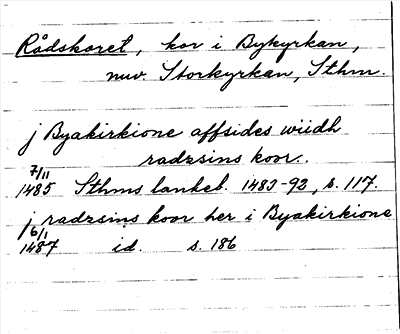 Rådskoret, kor i Bykyrkan,
nuv. Storkyrkan, Sthm.
j Byakirkione affsides wiidh
radzsins koor.
7/11
1485 Sthms tankeb. 1483-92, s. 117.
j radzsins koor her i Byakirkione
6/1
1487 id. s. 186